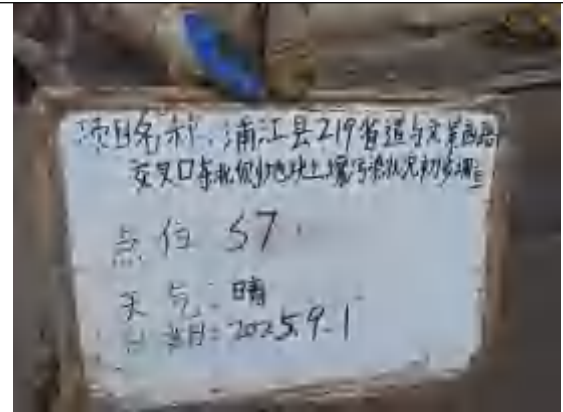 项目名称：浦江县219省道与文景西路
交叉口东北侧地块土壤污染状况初步调查
点位 S7
天气：晴
日期：2025.9.1